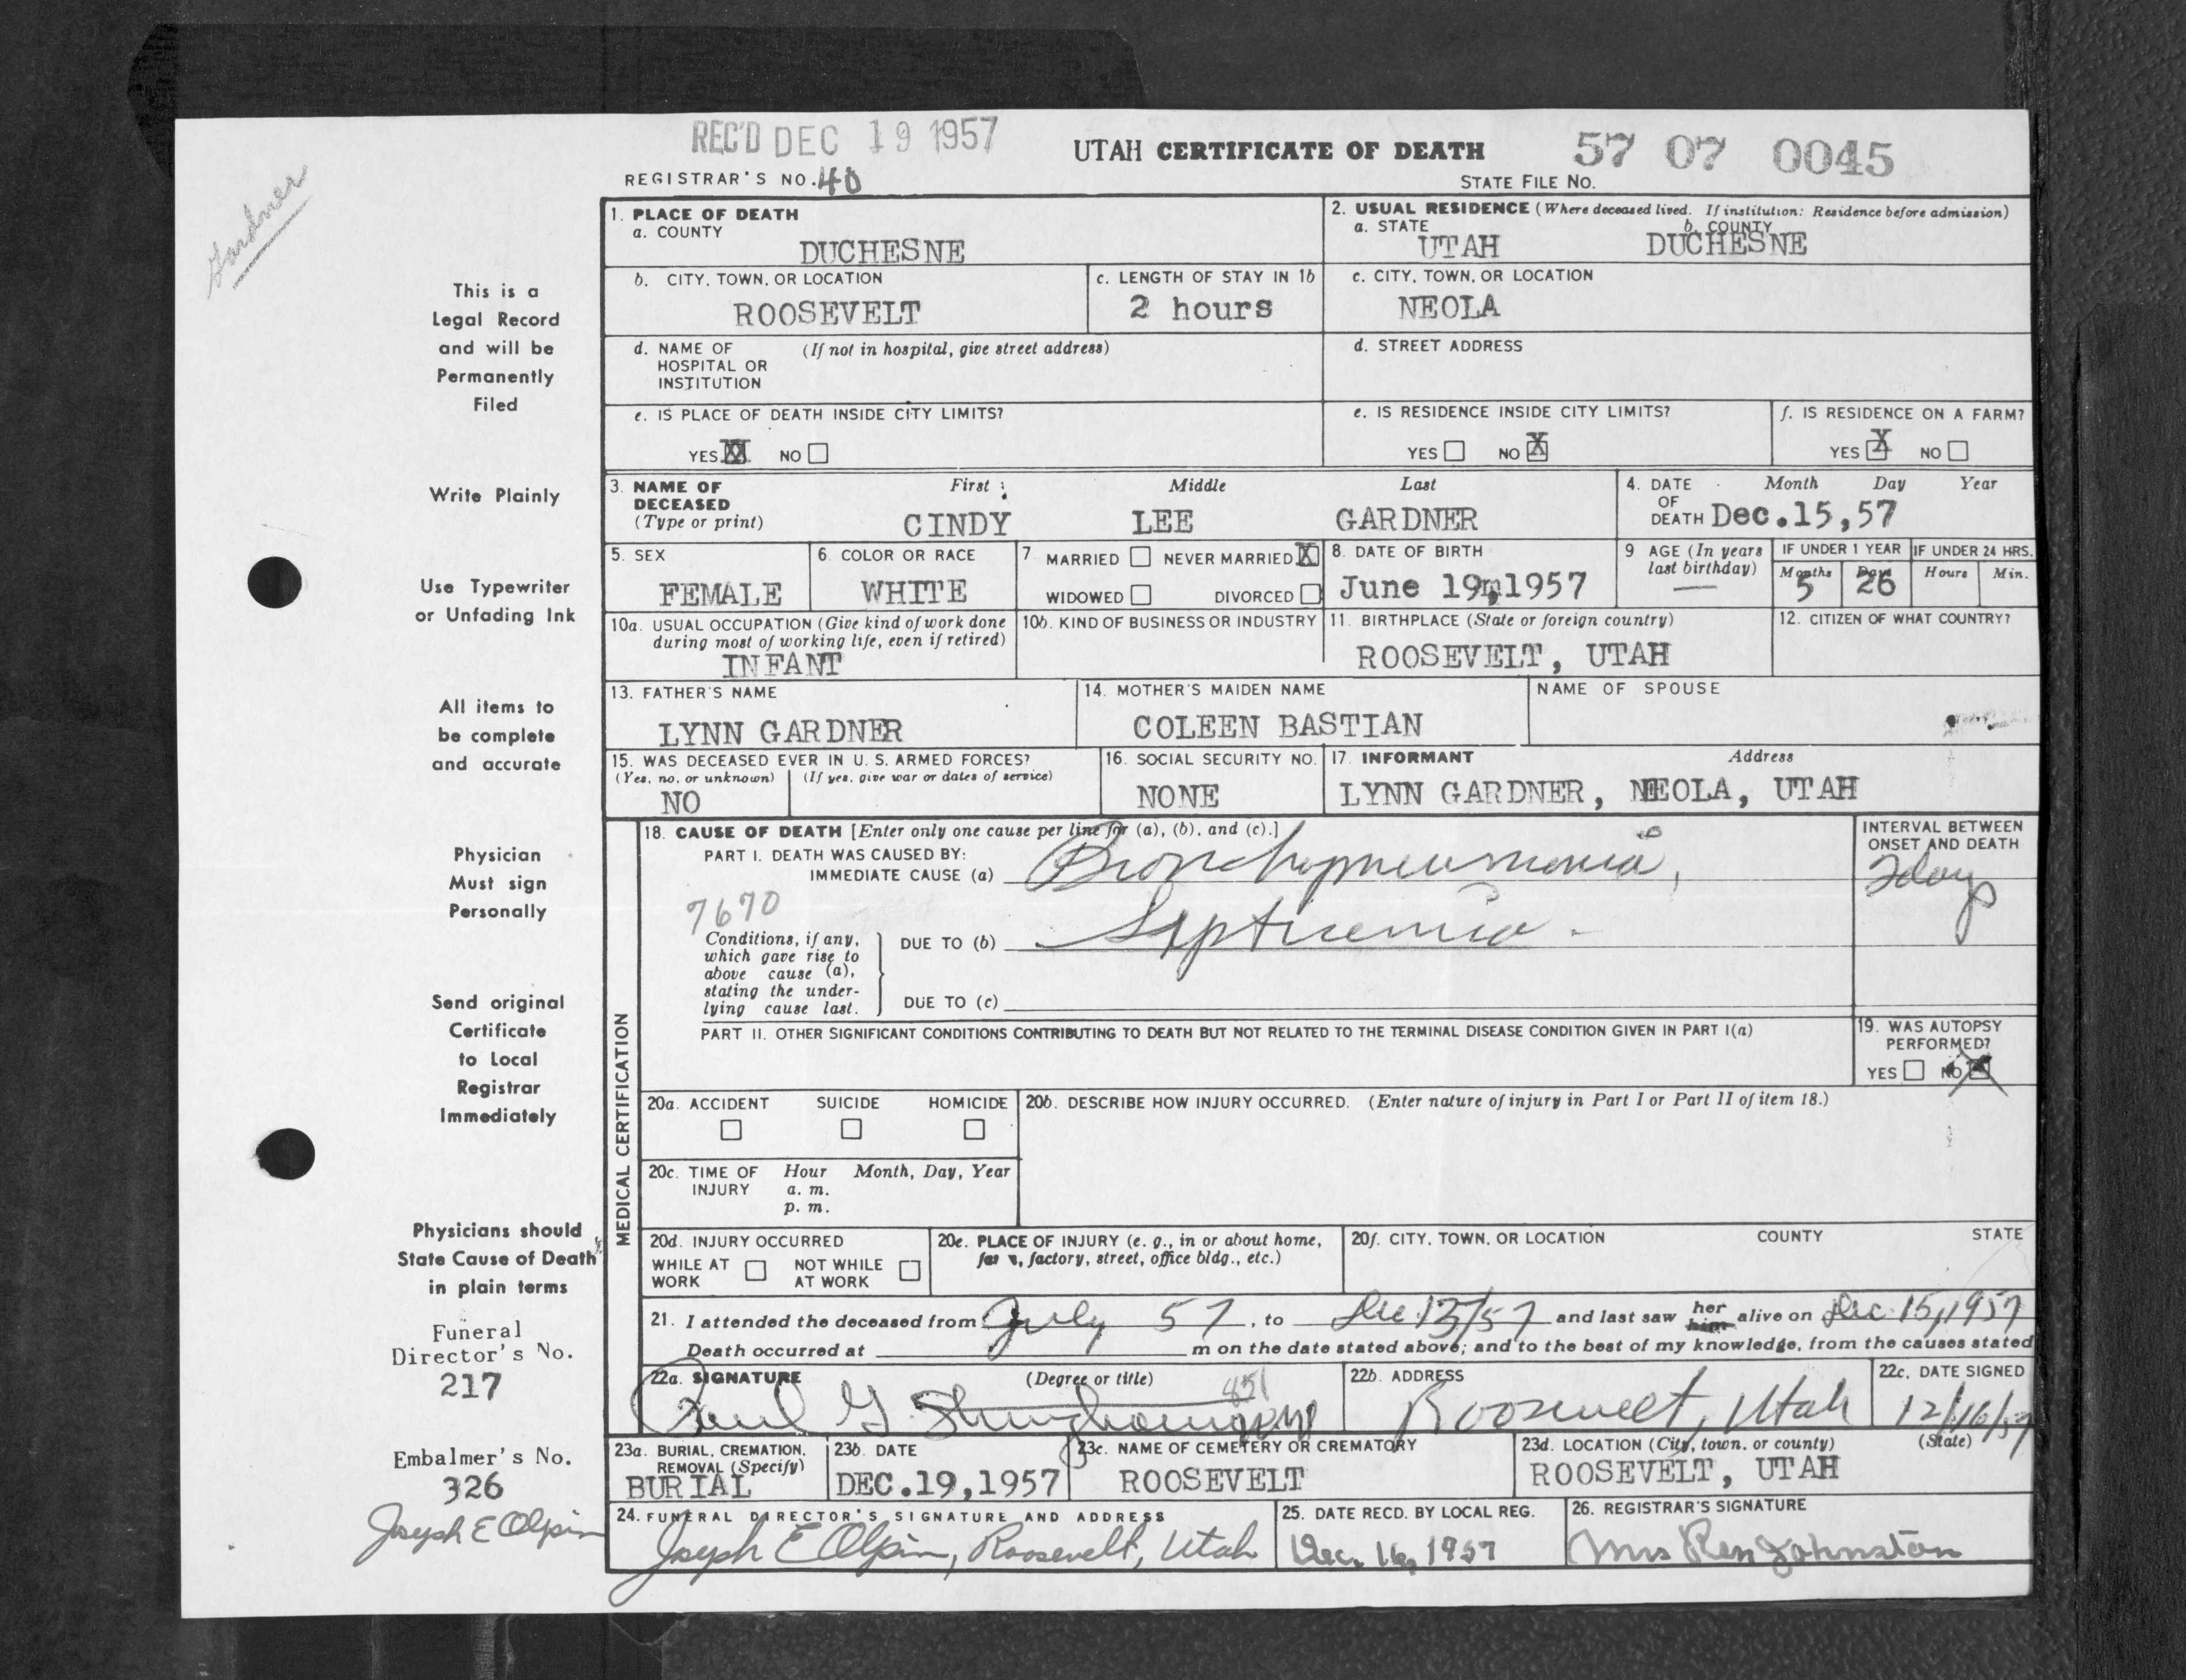 Gardner
REC'D DEC 19 1957
UTAH CERTIFICATE OF DEATH
57 07 0045
REGISTRAR'S NO. 40
STATE FILE NO.
1. PLACE OF DEATH
a. COUNTY
DUCHESNE
2. USUAL RESIDENCE (Where deceased lived. If institution: Residence before admission)
a. STATE
UTAH
b. COUNTY
DUCHESNE
b. CITY, TOWN, OR LOCATION
ROOSEVELT
c. LENGTH OF STAY IN 1b
2 hours
c. CITY, TOWN, OR LOCATION
NEOLA
d. NAME OF HOSPITAL OR INSTITUTION
(If not in hospital, give street address)
d. STREET ADDRESS
e. IS PLACE OF DEATH INSIDE CITY LIMITS?
YES XX NO
e. IS RESIDENCE INSIDE CITY LIMITS?
YES NO X
f. IS RESIDENCE ON A FARM?
YES X NO
3. NAME OF DECEASED (Type or print)
First Middle Last
CINDY LEE GARDNER
4. DATE OF DEATH
Month Day Year
Dec.15,57
5. SEX
FEMALE
6. COLOR OR RACE
WHITE
7. MARRIED NEVER MARRIED X
WIDOWED DIVORCED
8. DATE OF BIRTH
June 19, 1957
9 AGE (In years last birthday)
—
IF UNDER 1 YEAR
Months Days
5 26
IF UNDER 24 HRS.
Hours Min.
10a. USUAL OCCUPATION (Give kind of work done during most of working life, even if retired)
INFANT
10b. KIND OF BUSINESS OR INDUSTRY
11. BIRTHPLACE (State or foreign country)
ROOSEVELT, UTAH
12. CITIZEN OF WHAT COUNTRY?
13. FATHER'S NAME
LYNN GARDNER
14. MOTHER'S MAIDEN NAME
COLEEN BASTIAN
NAME OF SPOUSE
15. WAS DECEASED EVER IN U. S. ARMED FORCES?
(Yes, no, or unknown) (If yes, give war or dates of service)
NO
16. SOCIAL SECURITY NO.
NONE
17. INFORMANT Address
LYNN GARDNER, NEOLA, UTAH
MEDICAL CERTIFICATION
18. CAUSE OF DEATH [Enter only one cause per line for (a), (b), and (c).]
PART I. DEATH WAS CAUSED BY:
IMMEDIATE CAUSE (a) Bronchopneumonia,
INTERVAL BETWEEN ONSET AND DEATH
2 days
7670
Conditions, if any, which gave rise to above cause (a), stating the underlying cause last.
DUE TO (b) Septicemia -
DUE TO (c)
PART II. OTHER SIGNIFICANT CONDITIONS CONTRIBUTING TO DEATH BUT NOT RELATED TO THE TERMINAL DISEASE CONDITION GIVEN IN PART I(a)
19. WAS AUTOPSY PERFORMED?
YES NO X
20a. ACCIDENT SUICIDE HOMICIDE
20b. DESCRIBE HOW INJURY OCCURRED. (Enter nature of injury in Part I or Part II of item 18.)
20c. TIME OF INJURY
Hour Month, Day, Year
a. m.
p. m.
20d. INJURY OCCURRED
WHILE AT WORK NOT WHILE AT WORK
20e. PLACE OF INJURY (e. g., in or about home, farm, factory, street, office bldg., etc.)
20f. CITY, TOWN, OR LOCATION COUNTY STATE
21. I attended the deceased from July 57, to Dec 15/57 and last saw her him alive on Dec. 15, 1957
Death occurred at m on the date stated above; and to the best of my knowledge, from the causes stated
22a. SIGNATURE (Degree or title)
Paul G. Stringham MD
22b. ADDRESS
Roosevelt, Utah
22c. DATE SIGNED
12/16/57
23a. BURIAL, CREMATION, REMOVAL (Specify)
BURIAL
23b. DATE
DEC.19,1957
23c. NAME OF CEMETERY OR CREMATORY
ROOSEVELT
23d. LOCATION (City, town, or county) (State)
ROOSEVELT, UTAH
24. FUNERAL DIRECTOR'S SIGNATURE AND ADDRESS
Joseph E Olpin, Roosevelt, Utah
25. DATE RECD. BY LOCAL REG.
Dec. 16, 1957
26. REGISTRAR'S SIGNATURE
Mrs Ren Johnston
This is a
Legal Record
and will be
Permanently
Filed
Write Plainly
Use Typewriter
or Unfading Ink
All items to
be complete
and accurate
Physician
Must sign
Personally
Send original
Certificate
to Local
Registrar
Immediately
Physicians should
State Cause of Death
in plain terms
Funeral
Director's No.
217
Embalmer's No.
326
Joseph E Olpin